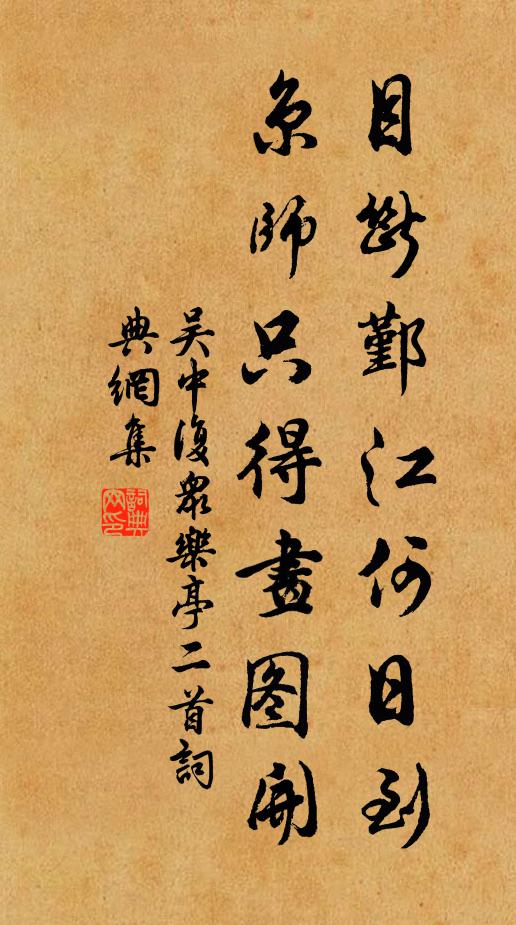 目断鄞江何日到
京師只得畫图開
吴中復衆樂亭二首詞
典網集
詞典網印